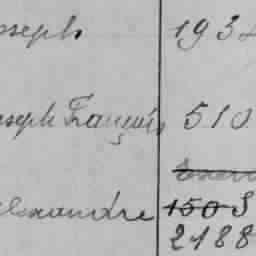 oseph 193
oseph François 510
lexandre 1505
2188